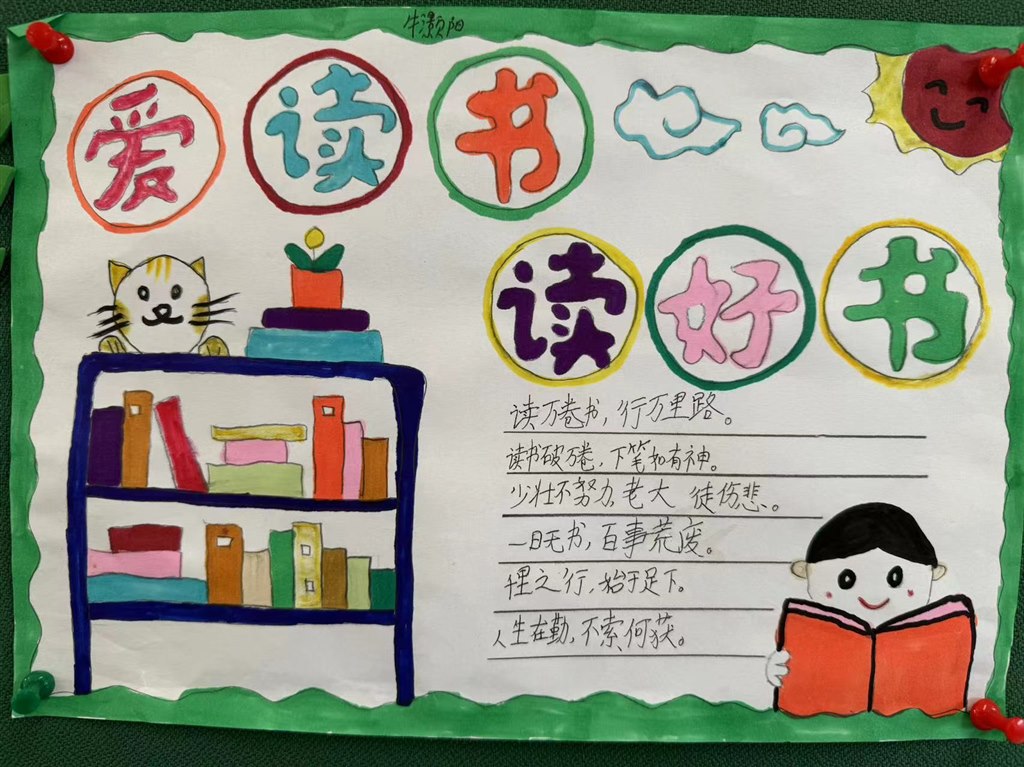 牛灏阳
爱读书
读好书
读万卷书，行万里路。
读书破万卷，下笔如有神。
少壮不努力，老大徒伤悲。
一日无书，百事荒废。
千里之行，始于足下。
人生在勤，不索何获。